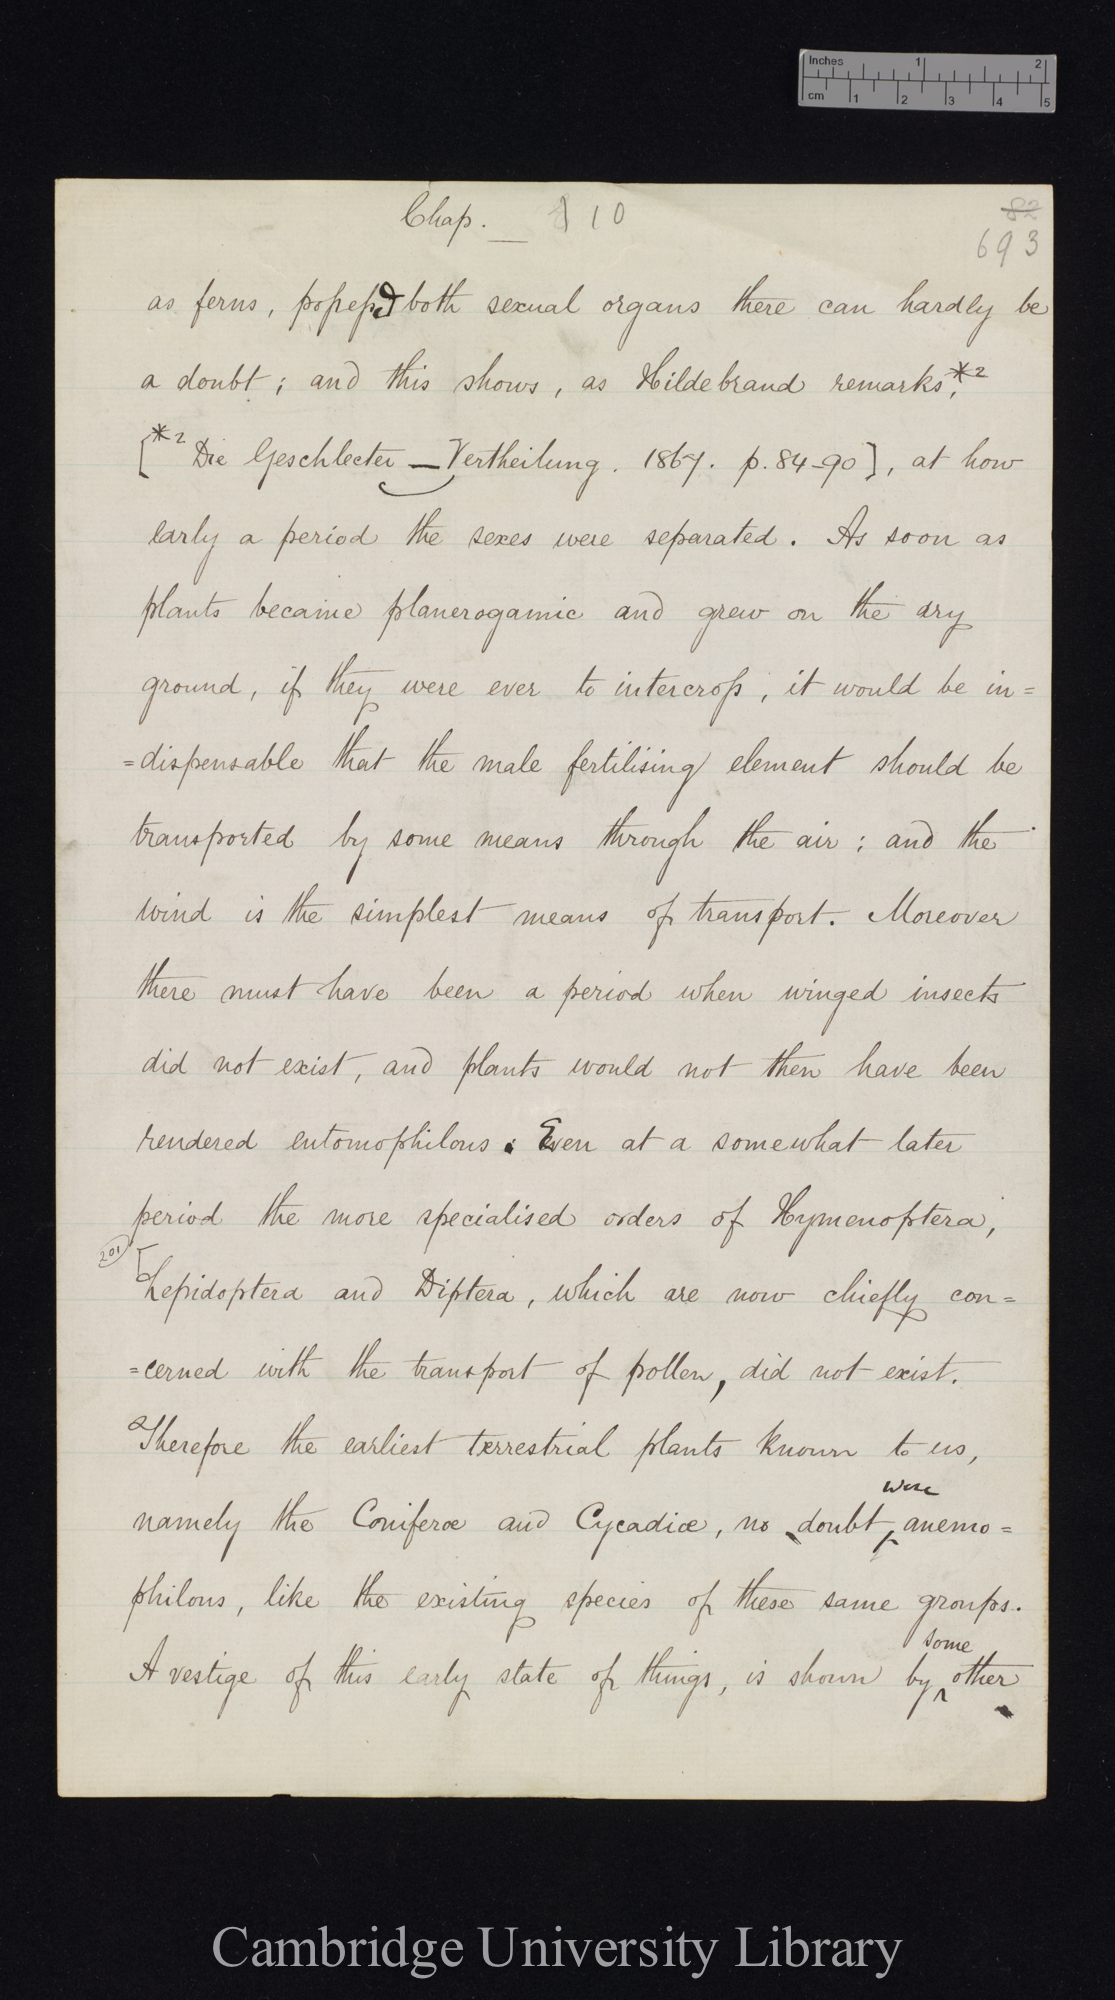 Inches 1 2
cm 1 2 3 4 5
Chap. 10
82
693
as ferns, possessed both sexual organs there can hardly be
a doubt; and this shows, as Hildebrand remarks,*2
[*2 Die Geschlecter—Vertheilung. 1867. p. 84-90], at how
early a period the sexes were separated. As soon as
plants became planerogamic and grew on the dry
ground, if they were ever to intercross, it would be in=
=dispensable that the male fertilising element should be
transported by some means through the air; and the
wind is the simplest means of transport. Moreover
there must have been a period when winged insects
did not exist, and plants would not then have been
rendered entomophilous. Even at a somewhat later
period the more specialised orders of Hymenoptera,
201
[Lepidoptera and Diptera, which are now chiefly con=
=cerned with the transport of pollen, did not exist.
Therefore the earliest terrestrial plants known to us,
namely the Coniferæ and Cycadiæ, no doubt were anemo=
philous, like the existing species of these same groups.
A vestige of this early state of things, is shown by some other
Cambridge University Library